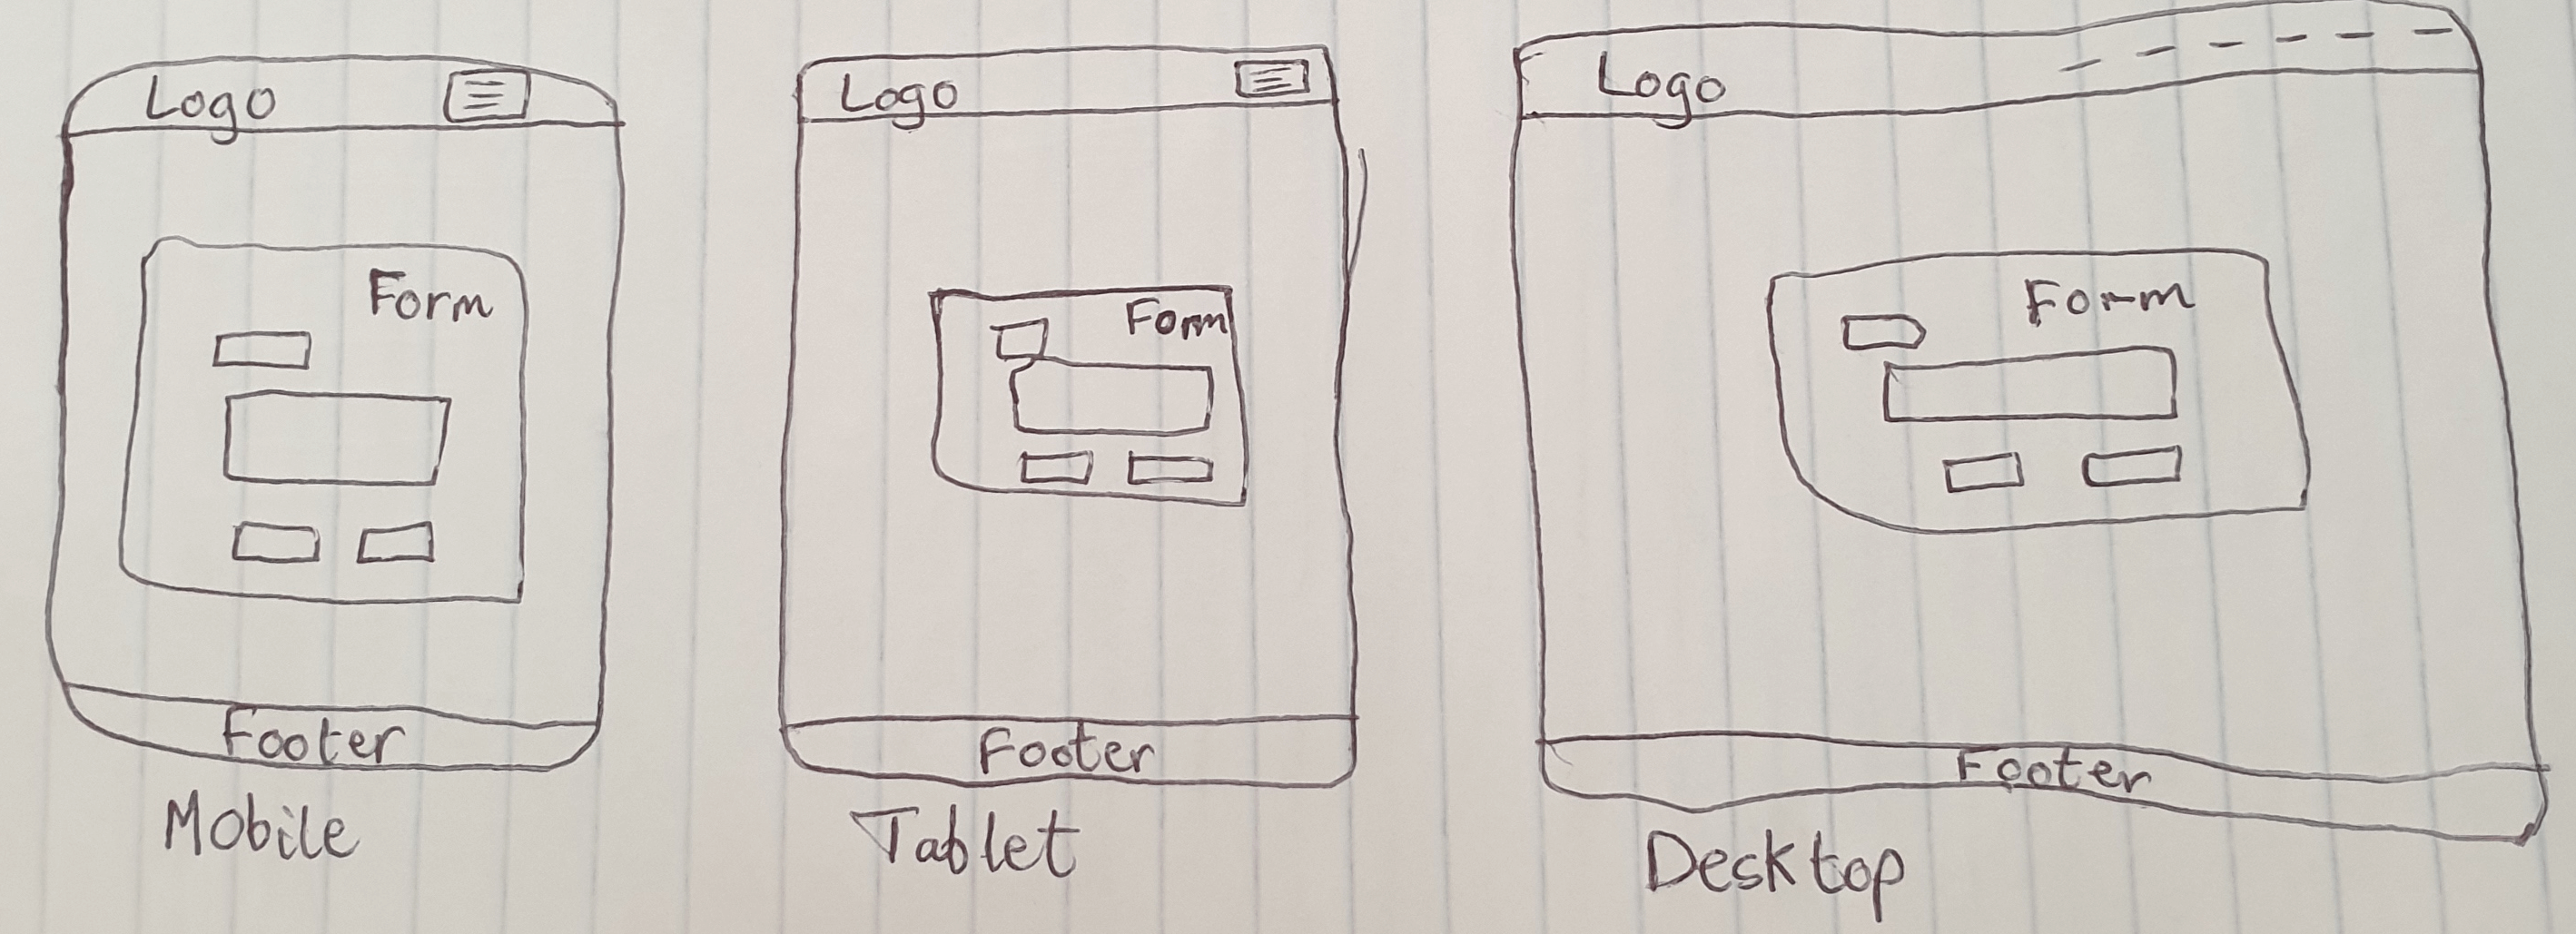 Logo
Form
Footer
Mobile
Logo
Form
Footer
Tablet
Logo
Form
Footer
Desktop